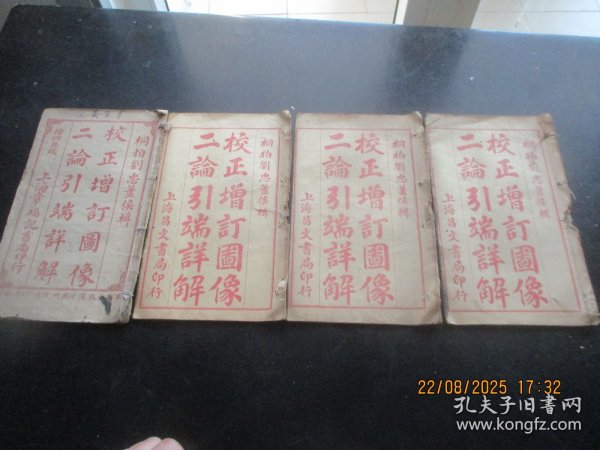 桐柏劉忠董侯輯
校正增訂圖像
二論引端詳解
桐柏劉忠董侯輯
校正增訂圖像
二論引端詳解
上海昌文書局印行
桐柏劉忠董侯輯
校正增訂圖像
二論引端詳解
上海昌文書局印行
桐柏劉忠董侯輯
校正增訂圖像
二論引端詳解
上海昌文書局印行
22/08/2025 17:32
孔夫子旧书网
www.kongfz.com